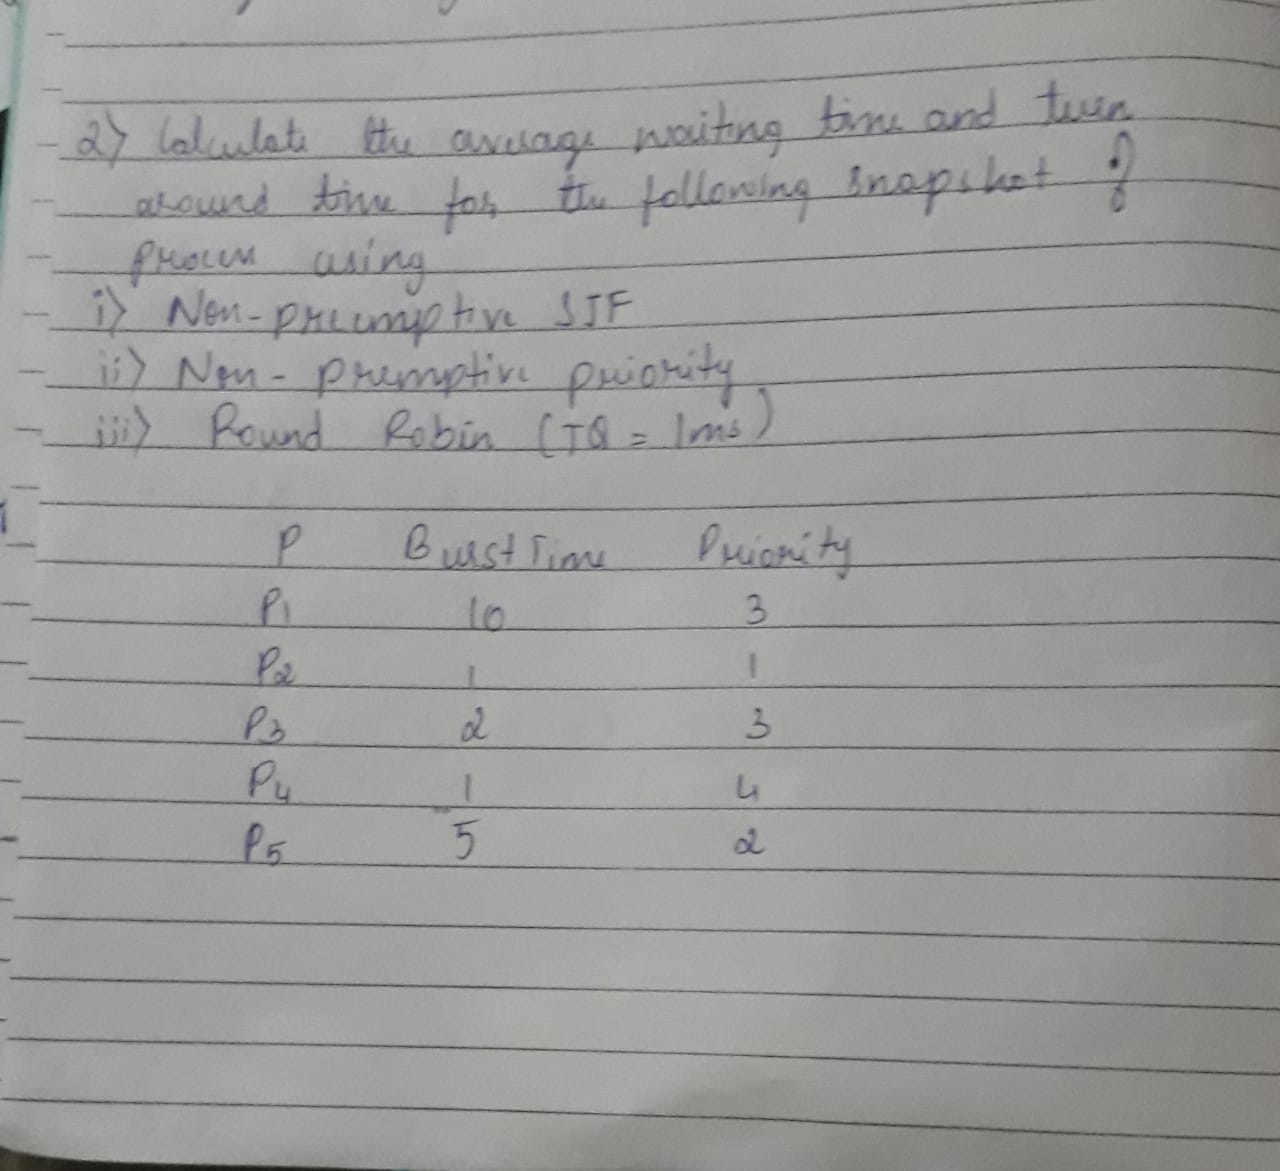 2) Calculate the average waiting time and turn
around time for the following snapshot of
process using
i) Non-preemptive SJF
ii) Non-premptive priority
iii) Round Robin (TQ = 1ms)
P Burst Time Priority
P1 10 3
P2 1 1
P3 2 3
P4 1 4
P5 5 2